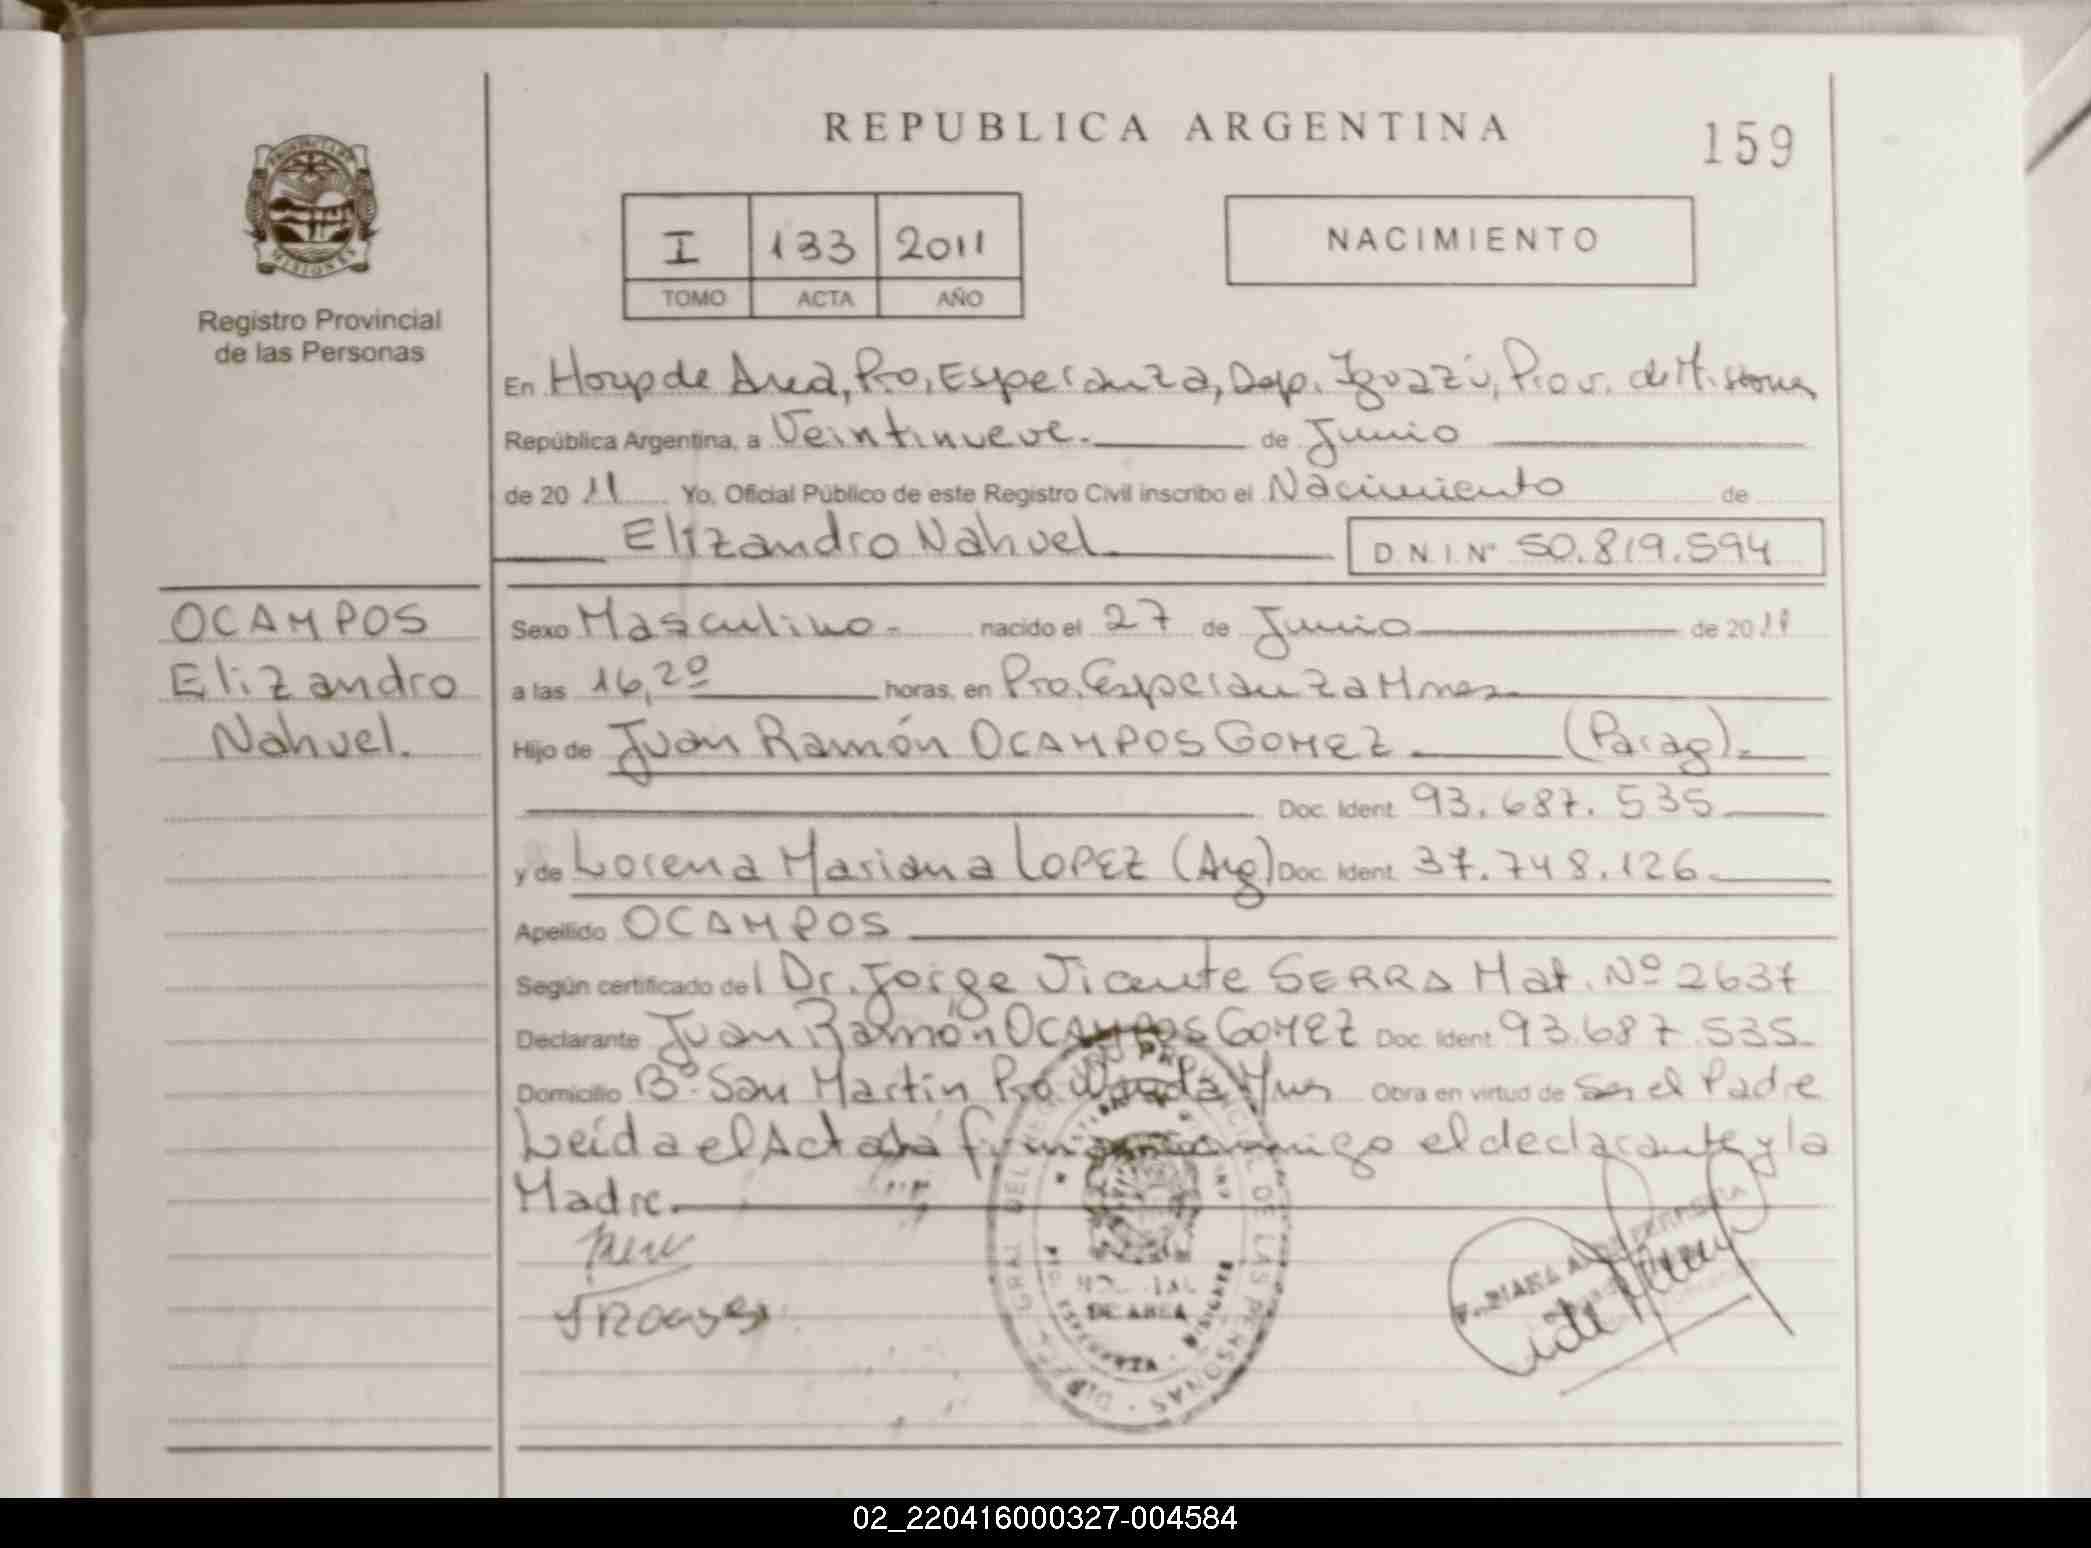 REPUBLICA ARGENTINA
159
I 133 2011
TOMO ACTA AÑO
NACIMIENTO
PROVINCIA DE
MISIONES
Registro Provincial
de las Personas
En Hosp de Area, Pto, Esperanza, Dep. Iguazú, Prov. de Misiones
República Argentina, a Veintinueve. de Junio
de 20 11 Yo, Oficial Público de este Registro Civil inscribo el Nacimiento de
Elizandro Nahuel D N I Nº 50.819.594
OCAMPOS
Elizandro
Nahuel.
Sexo Masculino.- nacido el 27 de Junio de 20 11
a las 16,20 horas, en Pto. Esperanza Mnes
Hijo de Juan Ramón OCAMPOS GOMEZ (Parag).
Doc. Ident. 93.687.535
y de Lorena Mariana LOPEZ (Arg) Doc. Ident. 37.748.126.
Apellido OCAMPOS
Según certificado del Dr. Jorge Vicente SERRA Mat. Nº 2637
Declarante Juan Ramón OCAMPOS GOMEZ Doc. Ident. 93.687.535
Domicilio Bº San Martin Pto Wanda Mns Obra en virtud de Ser el Padre
Leída el Acta la firman conmigo el declarante y la
Madre.
PROVINCIAL DE LAS PERSONAS
DE AREA
02_220416000327-004584